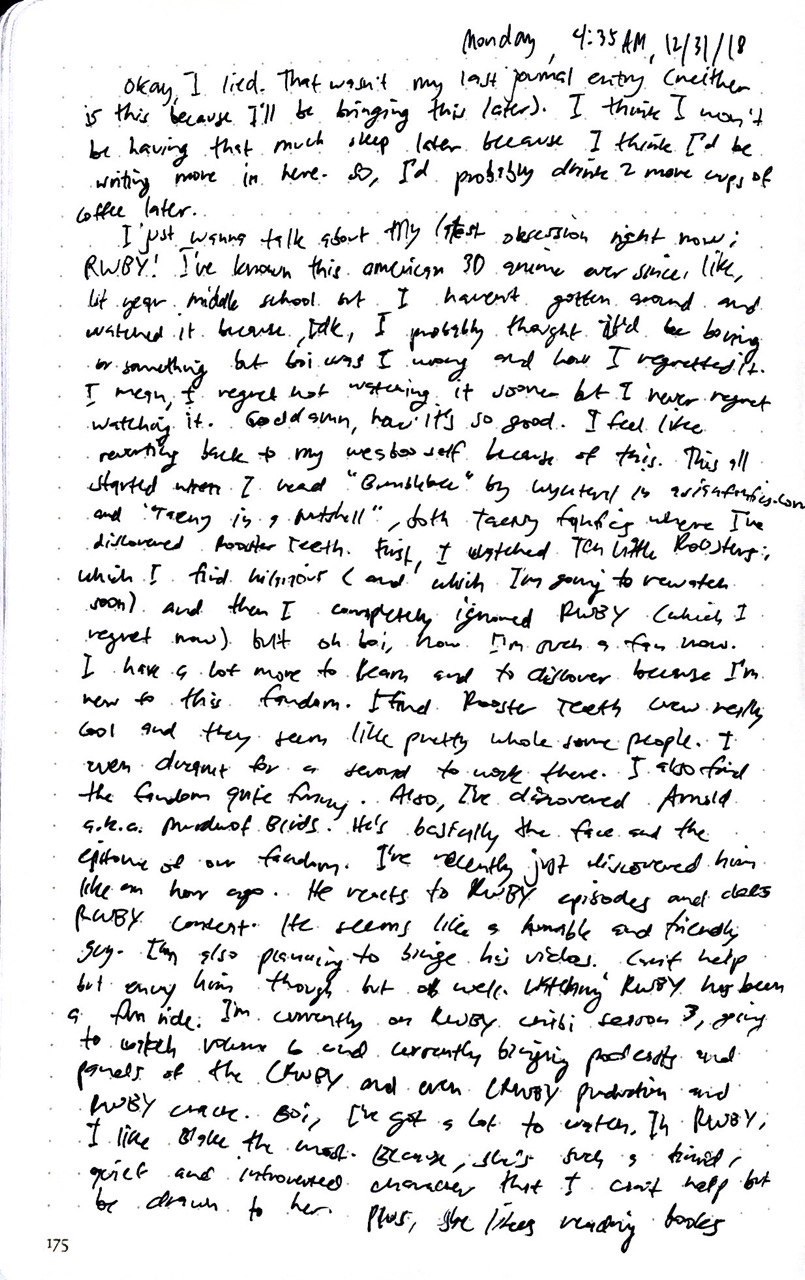 Monday, 4:35 AM, 12/31/18
Okay, I lied. That wasn't my last journal entry (neither
is this because I'll be bringing this later). I think I won't
be having that much sleep later because I think I'd be
writing more in here. So, I'd probably drink 2 more cups of
coffee later.
I just wanna talk about my latest obsession right now;
RWBY! I've known this american 3D anime ever since, like,
1st year middle school but I haven't gotten around and
watched it because, Idk, I probably thought it'd be boring
or something but boi was I wrong and how I regretted it.
I mean, I regret not watching it sooner but I never regret
watching it. Goddamn, how it's so good. I feel like
reverting back to my weeboo self because of this. This all
started when I read "Bumblebee" by in asianfanfics.com
and "Taeny in a Nutshell", both Taeny fanfics where I've
discovered Rooster Teeth. First, I watched Ten Little Roosters;
which I find hilarious (and which I'm going to rewatch
soon) and then I completely ignored RWBY (which I
regret now) but oh boi, how I'm such a fan now.
I have a lot more to learn and to discover because I'm
new to this fandom. I find Rooster Teeth crew really
cool and they seem like pretty whole some people. I
even dreamt for a second to work there. I also find
the fandom quite funny. Also, I've discovered Arnold
a.k.a. Murder of Birds. He's basically the face and the
epitome of our fandom. I've recently just discovered him
like an hour ago. He reacts to RWBY episodes and does
RWBY content. He seems like a humble and friendly
guy. I'm also planning to binge his videos. Can't help
but envy him though but oh well. Watching RWBY has been
a fun ride. I'm currently on RWBY chibi season 3, going
to watch volume 6 and currently binging podcasts and
panels of the CRWBY and even CRWBY production and
RWBY crack. Boi, I've got a lot to watch. In RWBY,
I like Blake the most. Because, she's such a timid,
quiet and introverted character that I can't help but
be drawn to her. Plus, she likes reading books
175